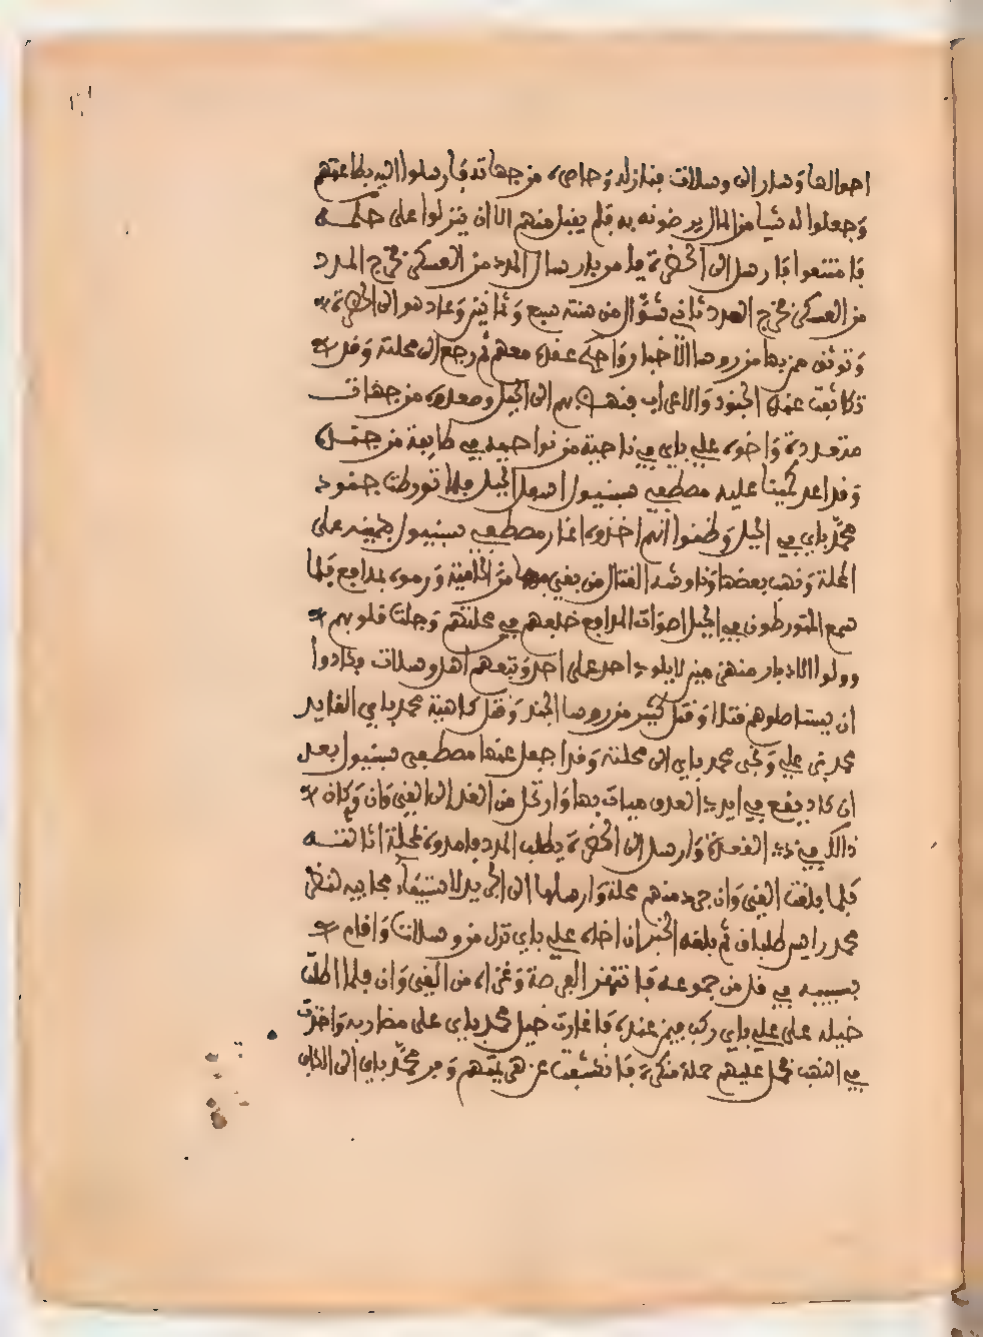 احوالها وسار الى وسلات فنازله وحاصره من جهاته فارسلوا اليه بطاعتهم
وجعلوا له شيا من المال يرضونه به فلم يقبل منهم الا ان ينزلوا على حكمه
فامتنعوا فارسل الى الحضرة يامر بارسال المدد من العسكر فخرج المدد
من العسكر فخرج المدد ثاني شوال من سنة سبع وثمانين وعاد هو الى الحضرة
وتوثق ممن بها من روسا الاخبار واحكم عقده معهم ثم رجع الى محلته وقد
تكاثفت عنده الجنود والاعراب فنهض بهم الى الجبل وصعدوه من جهات
متعددة واخوه علي باي في ناحية من نواحيه في طايفة من جمله
وقد اعد كمينا عليه مصطفى سبنيول اسفل الجبل فلما تورطت جنود
محمد باي في الجبل وظنوا انهم اخذوه اغار مصطفى سبنيول بكمينه على
المحلة ونهب بعضها وناوشه القتال من بقي بها من الحامية ورموه بمدافع فلما
سمع المتورطون في الجبل اصوات المدافع خلفهم في محلتهم وجلت قلوبهم
وولوا الادبار منهزمين لا يلوي احد على احد وتبعهم اهل وسلات فكادوا
ان يستاصلوهم قتلا وقتل كثير من روسا الجند وقتل كاهية محمد باي القايد
محمد بن علي ونجى محمد باي الى محلته وقد اجفل عنها مصطفى سبنيول بعد
ان كاد يقع في ايدي العدو فبات بها وارتحل من الغد الى القيروان وكان
ذالك في ذي القعدة وارسل الى الحضرة يطلب المدد فامدوه بمحلة ثالثة
فلما بلغت القيروان جرد منهم محلة وارسلها الى الجريد لاستيفاء مجابيه لنظر
محمد رايس طاباق ثم بلغه الخبر ان اخاه علي باي نزل من وسلات واقام
بسبيبه في فل من جموعه فانتهز الفرصة وغزاه من القيروان فلما اطلت
خيله على علي باي ركب فيمن عنده فاغارت خيل محمد باي على مضاربه واخذت
في النهب فحمل عليهم حملة منكرة فانكشفت عن هزيمتهم وفر محمد باي الى الكاف